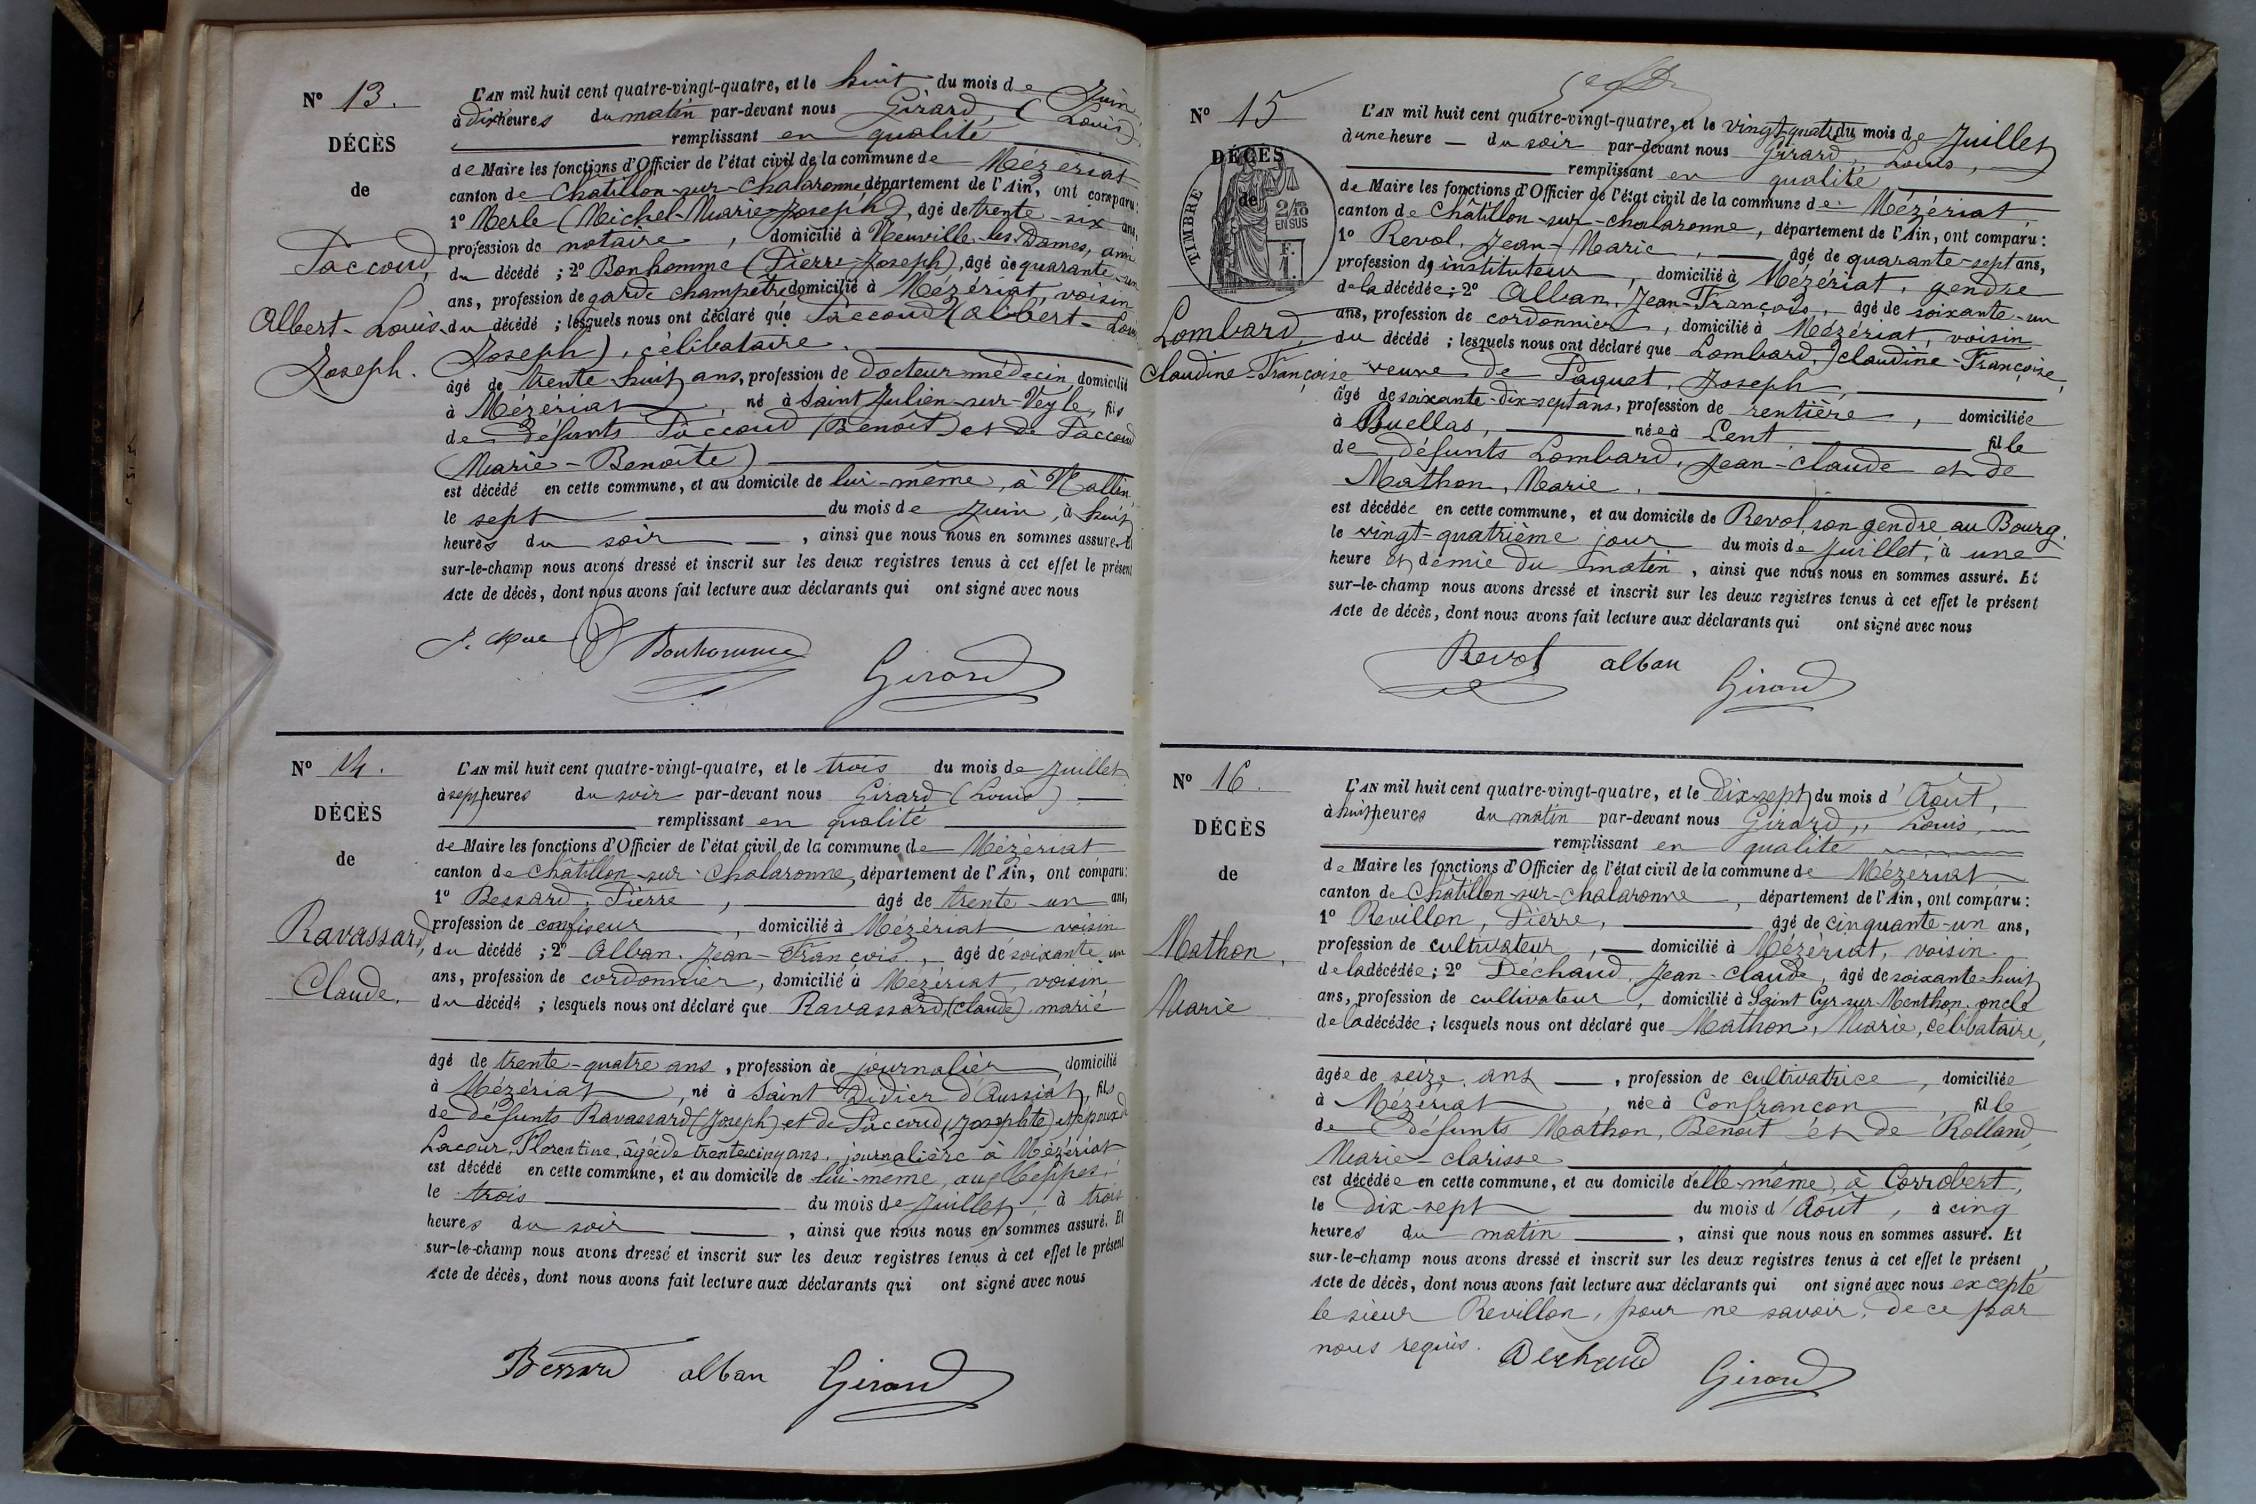 N° 13.
DÉCÈS
de
Paccoud,
Albert-Louis
Joseph.
L'AN mil huit cent quatre-vingt-quatre, et le huit du mois de Juin
à dix heures du matin par-devant nous Girard (Louis)
remplissant en qualité
de Maire les fonctions d'Officier de l'état civil de la commune de Mézériat
canton de Chatillon-sur-Chalaronne département de l'Ain, ont comparu:
1° Merle (Michel-Marie-Joseph), âgé de trente-six ans,
profession de notaire, domicilié à Neuville-les-Dames, ami
du décédé ; 2° Bonhomme (Pierre-Joseph), âgé de quarante-un
ans, profession de garde champetre domicilié à Mézériat, voisin
du décédé ; lesquels nous ont déclaré que Paccoud (Albert-Louis
Joseph), célibataire.
âgé de trente-huit ans, profession de Docteur médecin, domicilié
à Mézériat, né à Saint Julien-sur-Veyle, fils
de défunts Paccoud (Benoît) et de Paccoud
(Marie-Benoîte)
est décédé en cette commune, et au domicile de lui-même, à
le sept du mois de Juin, à huit
heures du soir, ainsi que nous nous en sommes assuré. Et
sur-le-champ nous avons dressé et inscrit sur les deux registres tenus à cet effet le présent
Acte de décès, dont nous avons fait lecture aux déclarants qui ont signé avec nous
Bonhomme Girard
N° 14.
DÉCÈS
de
Ravassard,
Claude.
L'AN mil huit cent quatre-vingt-quatre, et le trois du mois de Juillet
à sept heures du soir par-devant nous Girard (Louis)
remplissant en qualité
de Maire les fonctions d'Officier de l'état civil de la commune de Mézériat
canton de Châtillon-sur-Chalaronne, département de l'Ain, ont comparu:
1° Bessard, Pierre, âgé de trente-un ans,
profession de confiseur, domicilié à Mézériat voisin
du décédé ; 2° Alban, Jean-François, âgé de soixante-un
ans, profession de cordonnier, domicilié à Mézériat, voisin
du décédé ; lesquels nous ont déclaré que Ravassard, (Claude) marié
âgé de trente-quatre ans, profession de journalier, domicilié
à Mézériat, né à Saint Didier d'Aussiat, fils
de défunts Ravassard (Joseph) et de Paccoud (Josephte) et époux de
Lacour, Florentine, âgée de trente cinq ans, journalière à Mézériat
est décédé en cette commune, et au domicile de lui-même, aux
le trois du mois de Juillet à trois
heures du soir, ainsi que nous nous en sommes assuré. Et
sur-le-champ nous avons dressé et inscrit sur les deux registres tenus à cet effet le présent
Acte de décès, dont nous avons fait lecture aux déclarants qui ont signé avec nous
Bessard alban Girard
N° 15
DÉCÈS
de
TIMBRE
2/10
EN SUS
F.
1.
Lombard,
Claudine-Françoise
L'AN mil huit cent quatre-vingt-quatre, et le vingt-quatre du mois de Juillet
à une heure du soir par-devant nous Girard, Louis,
remplissant en qualité
de Maire les fonctions d'Officier de l'état civil de la commune de Mézériat
canton de Châtillon-sur-Chalaronne, département de l'Ain, ont comparu :
1° Revol, Jean-Marie, âgé de quarante-sept ans,
profession de instituteur, domicilié à Mézériat, gendre
de la décédée ; 2° Alban, Jean-François, âgé de soixante-un
ans, profession de cordonnier, domicilié à Mézériat, voisin
du décédé ; lesquels nous ont déclaré que Lombard, Claudine-Françoise,
veuve de Paquet, Joseph,
âgé de soixante-dix-sept ans, profession de rentière, domiciliée
à Buellas, née à Lent, fille
de défunts Lombard, Jean-Claude et de
Mathon, Marie.
est décédée en cette commune, et au domicile de Revol, son gendre au Bourg.
le vingt-quatrième jour du mois de Juillet, à une
heure et demie du matin, ainsi que nous nous en sommes assuré. Et
sur-le-champ nous avons dressé et inscrit sur les deux registres tenus à cet effet le présent
Acte de décès, dont nous avons fait lecture aux déclarants qui ont signé avec nous
Revol alban Girard
N° 16.
DÉCÈS
de
Mathon,
Marie
L'AN mil huit cent quatre-vingt-quatre, et le Dix-sept du mois d'Août,
à huit heures du matin par-devant nous Girard, Louis,
remplissant en qualité
de Maire les fonctions d'Officier de l'état civil de la commune de Mézériat
canton de Châtillon-sur-Chalaronne, département de l'Ain, ont comparu :
1° Revillon, Pierre, âgé de cinquante-un ans,
profession de cultivateur, domicilié à Mézériat, voisin
de la décédée ; 2° Déchaud, Jean-Claude, âgé de soixante-huit
ans, profession de cultivateur, domicilié à Saint Cyr-sur-Menthon, oncle
de la décédée ; lesquels nous ont déclaré que Mathon, Marie, célibataire,
âgée de seize ans, profession de cultivatrice, domiciliée
à Mézériat, née à Confrançon, fille
de défunts Mathon, Benoit et de Rolland,
Marie-Clarisse
est décédée en cette commune, et au domicile d'elle-même, à Corrobert,
le Dix-sept du mois d'Août, à cinq
heures du matin, ainsi que nous nous en sommes assuré. Et
sur-le-champ nous avons dressé et inscrit sur les deux registres tenus à cet effet le présent
Acte de décès, dont nous avons fait lecture aux déclarants qui ont signé avec nous excepté
le sieur Revillon, pour ne savoir, de ce par
nous requis. Dechaud Girard